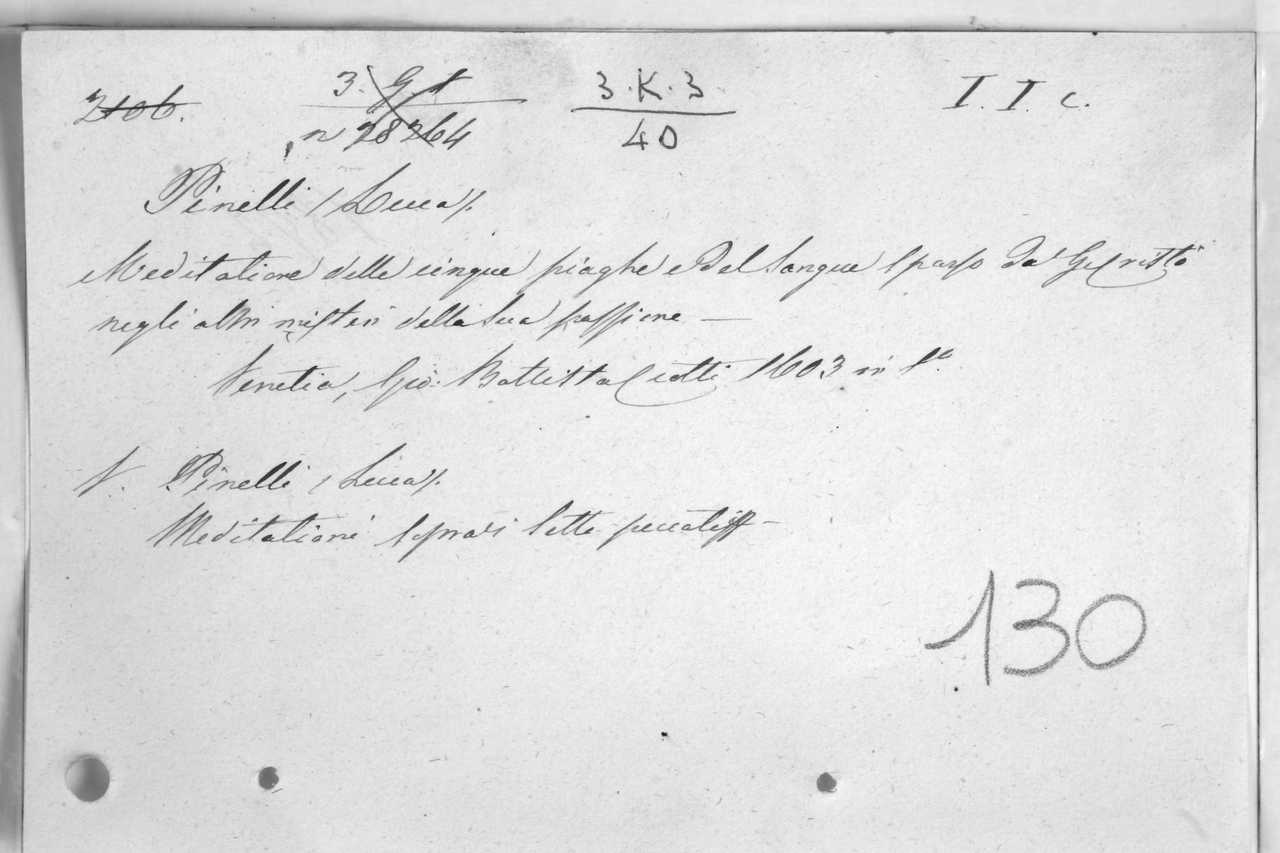 2106. 3. G. 1 3.K.3 I. I. c.
n 28264 40
Pinelli (Luca).
Meditatione delle cinque piaghe e del Sangue sparso da G Cristo
negli altri misteri della sua passione —
Venetia, Gio. Battista Ciotti 1603 in 8.º
V. Pinelli (Luca).
Meditationi sopra i sette peccati —
130